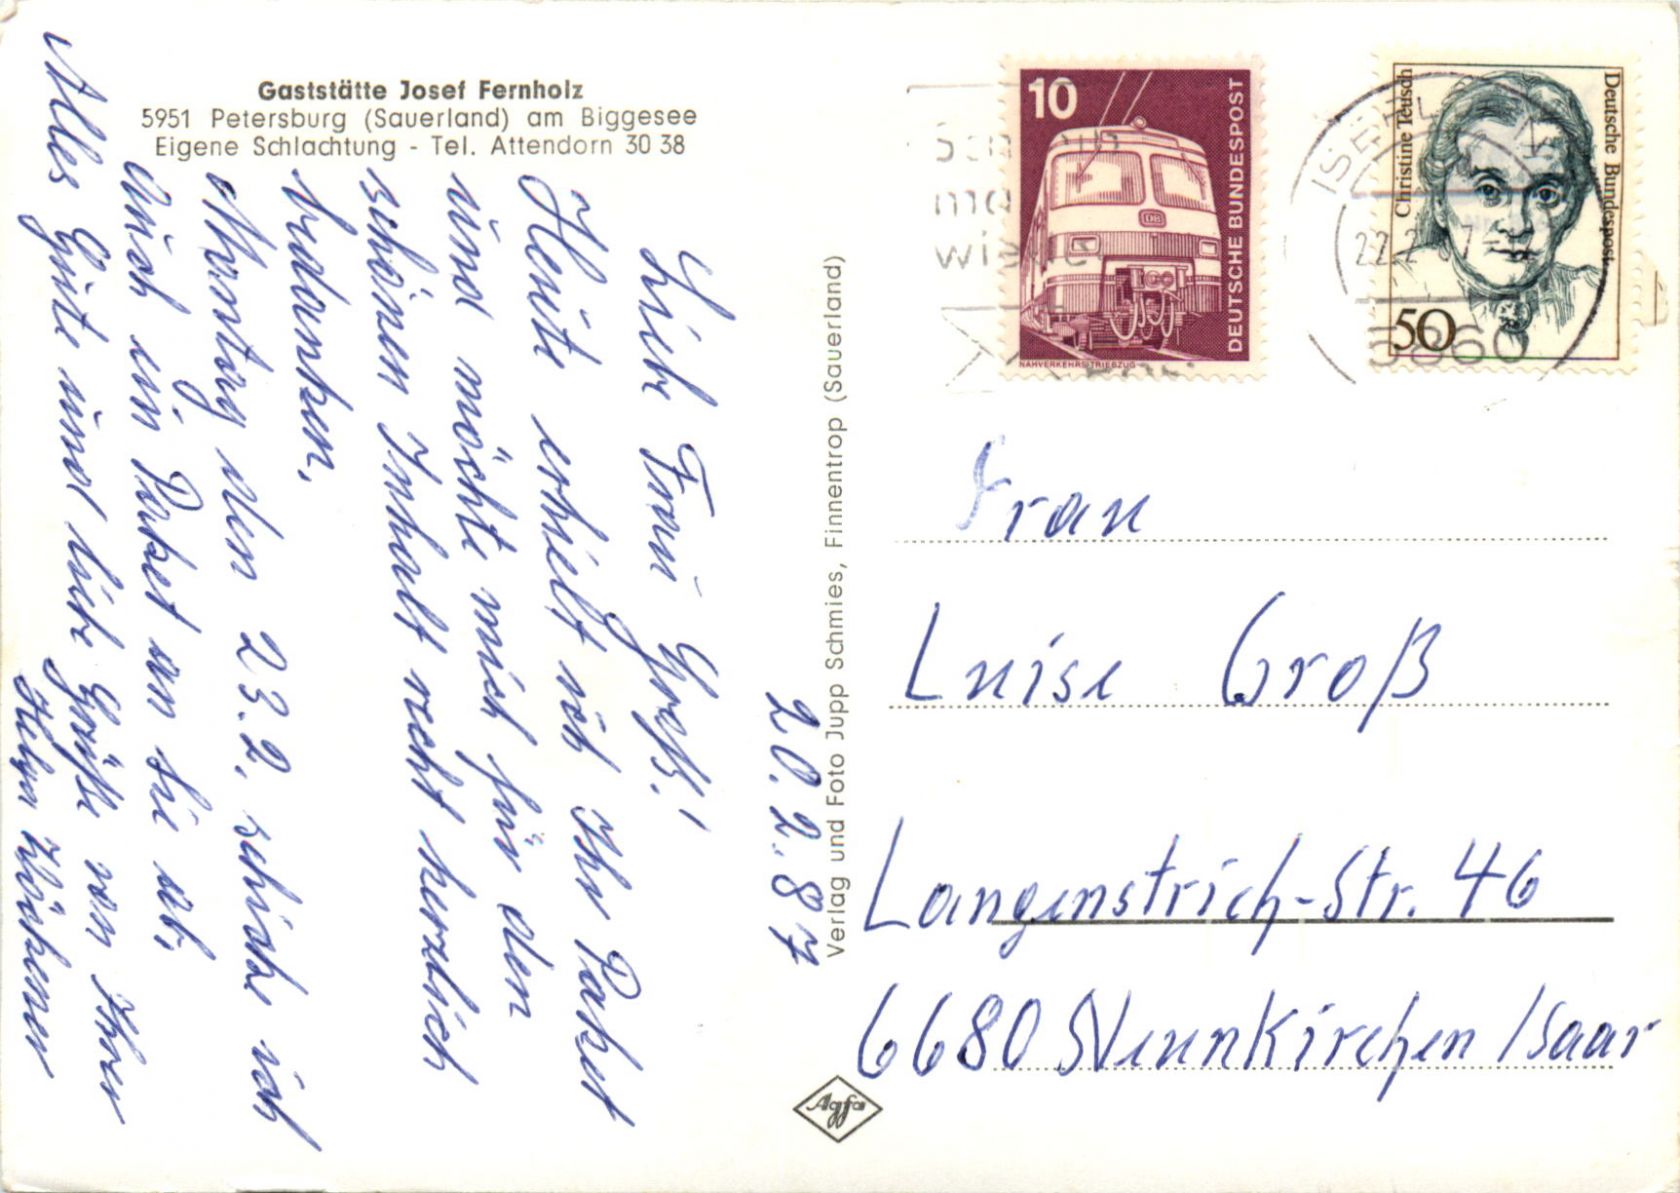 Gaststätte Josef Fernholz
5951 Petersburg (Sauerland) am Biggesee
Eigene Schlachtung - Tel. Attendorn 30 38
20.2.87
Liebe Frau Groß!
Heute erhielt ich Ihr Paket
und möchte mich für den
schönen Inhalt recht herzlich
bedanken.
Montag den 23.2. schicke ich
auch ein Paket an Sie ab.
Alles Gute und liebe Grüße von Ihrer
Helga
Verlag und Foto Jupp Schmies, Finnentrop (Sauerland)
Agfa
10
DEUTSCHE BUNDESPOST
NAHVERKEHRS-TRIEBZUG
DB
Christine Teusch
Deutsche Bundespost
50
ISERLOHN
5860
Frau
Luise Groß
Langenstrich-Str. 46
6680 Neunkirchen /Saar